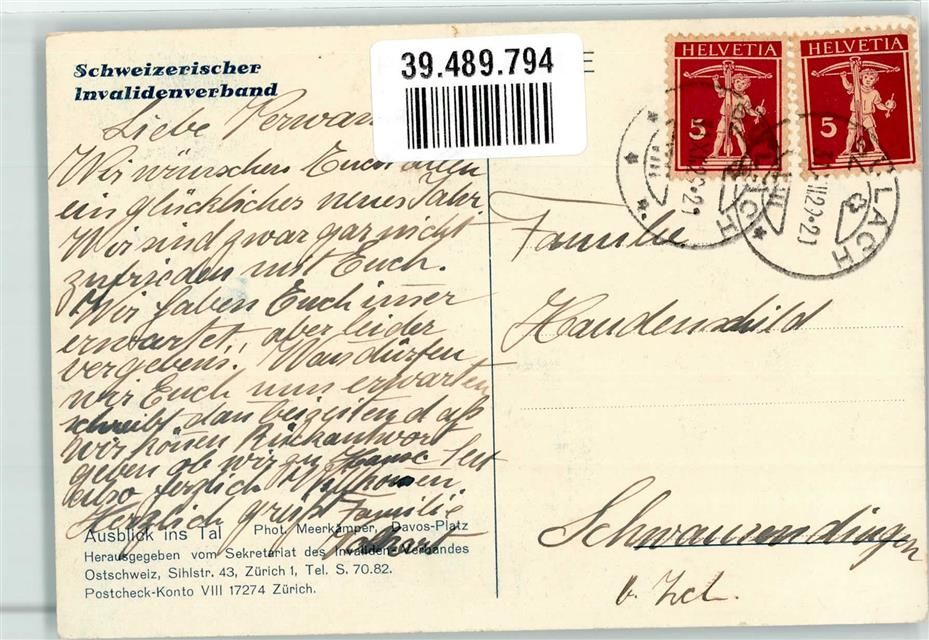 Schweizerischer
Invalidenverband
39.489.794
HELVETIA
HELVETIA
5
5
Liebe
Wir wünschen Euch allen
ein glückliches neues Jahr
Wir sind zwar gar nicht
zufrieden mit Euch.
Wir haben Euch imer
erwartet, aber leider
vergebens. Wan dürfen
wir Euch nun erwarten
schreibt dan beizeiten daß
wir könen Rückantwort
geben ob wir zu Hause
also herzlich Willkomen
Herzlich grüßt Familie
Familie
Haudenschild
Schwamendingen
b. Zch.
Ausblick ins Tal Phot. Meerkämper, Davos-Platz
Herausgegeben vom Sekretariat des Invaliden-Verbandes
Ostschweiz, Sihlstr. 43, Zürich 1, Tel. S. 70.82.
Postcheck-Konto VIII 17274 Zürich.